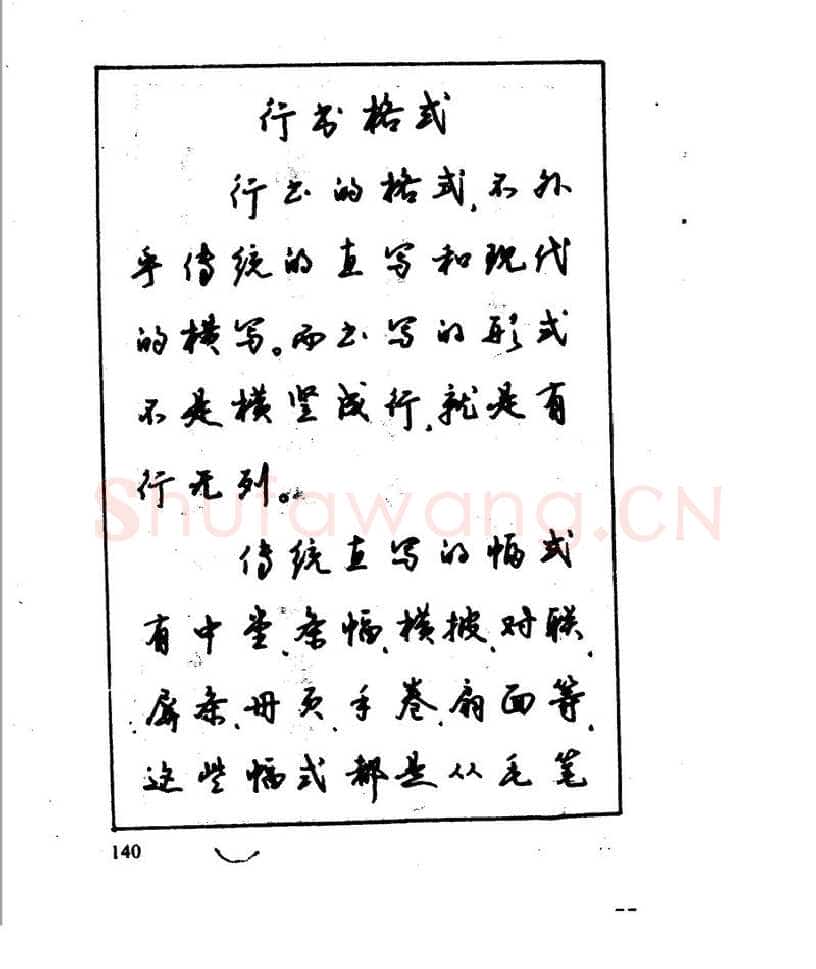 行书格式
行书的格式,不外
乎传统的直写和现代
的横写。而书写的形式
不是横竖成行,就是有
行无列。
Shufawang.CN
传统直写的幅式
有中堂、条幅、横披、对联、
屏条、册页、手卷、扇面等、
这些幅式都是从毛笔
140